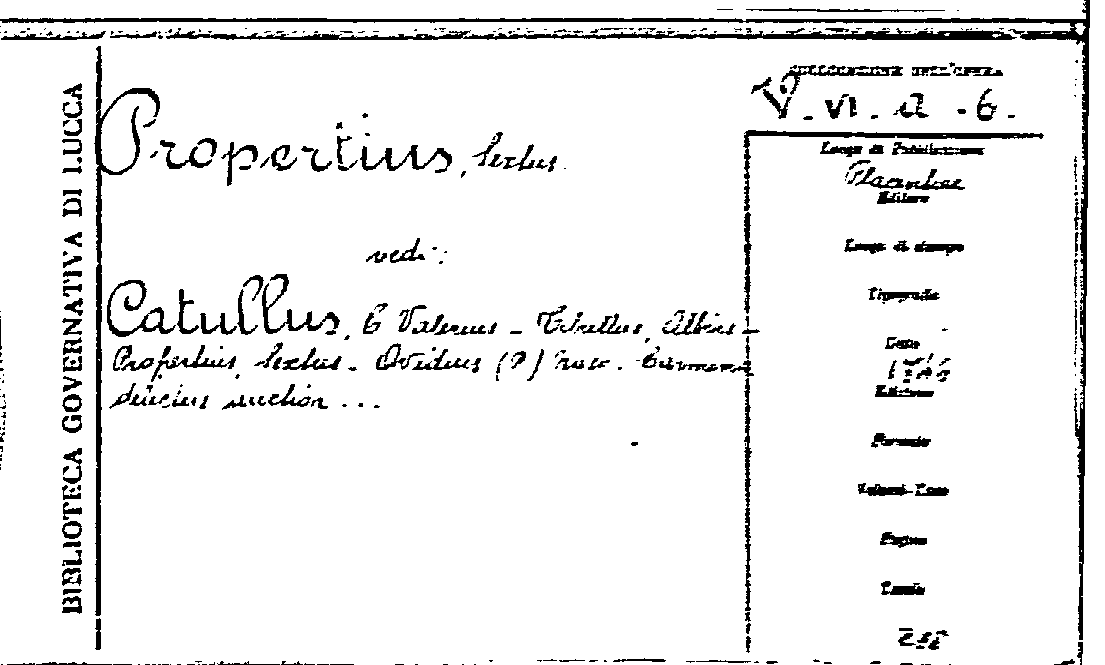 BIBLIOTECA GOVERNATIVA DI LUCCA
COLLOCAZIONE DELL'OPERA
V. VI. a. 6.
Propertius, Sextus.
vedi:
Catullus, C Valerius - Tibullus, Albius -
Propertius, Sextus - Ovidius (P) Naso - Carmina
auction...
Luogo di Pubblicazione
Placentiae
Editore
Luogo di stampa
Tipografia
Data
Edizione
Formato
Volumi-Tomo
Pagine
Tavole